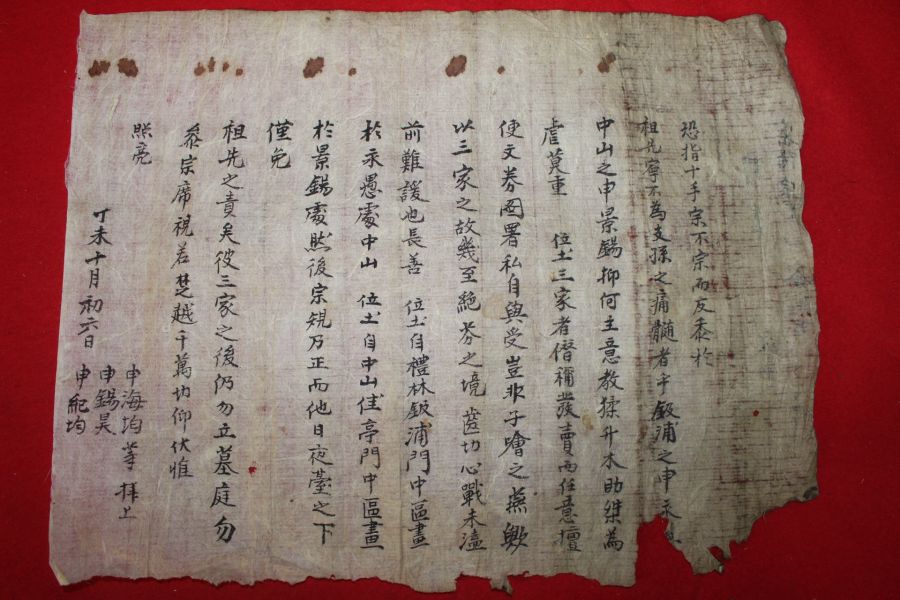 恐指十手宗不宗而反忝於
祖先寧不為支孫之痛髓者乎鈑浦之申
中山之申景錫抑何主意教猱升木助桀為
虐莫重 位土三家者僭稱發賣而任意擅
使文券圈署私自與受豈非子噲之燕歟
以三家之故幾至絶芬之境齒切心戰未溘
前難諼也長善 位土自禮林鈑浦門中區畫
於永愚處中山 位土自中山佳亭門中區畫
於景錫處然後宗規乃正而他日夜臺之下
僅免
祖先之責矣彼三家之後仍勿立墓庭勿
參宗席視若楚越千萬功仰伏惟
照亮
丁未十月初六日
申海均等 拜上
申錫昊
申紀均